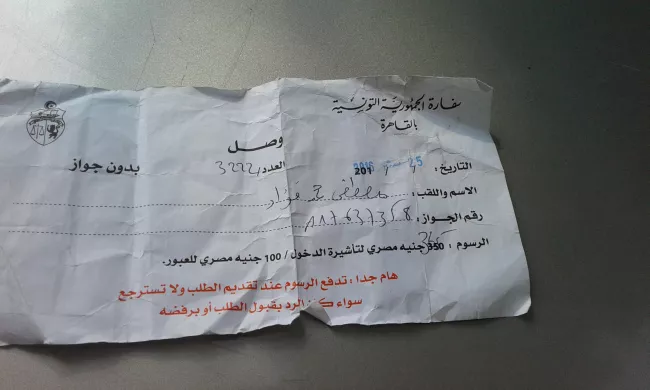 سفارة الجمهورية التونسية
بالقاهرة
وصل
العدد / 3222 بدون جواز
التاريخ : 25 2016 201
الاسم واللقب : مصطفى محمد فؤاد
رقم الجواز :
الرسوم : 350 جنيه مصري لتأشيرة الدخول / 100 جنيه مصري للعبور.
هام جدا : تدفع الرسوم عند تقديم الطلب ولا تسترجع
سواء كـ : الرد بقبول الطلب أو برفضه